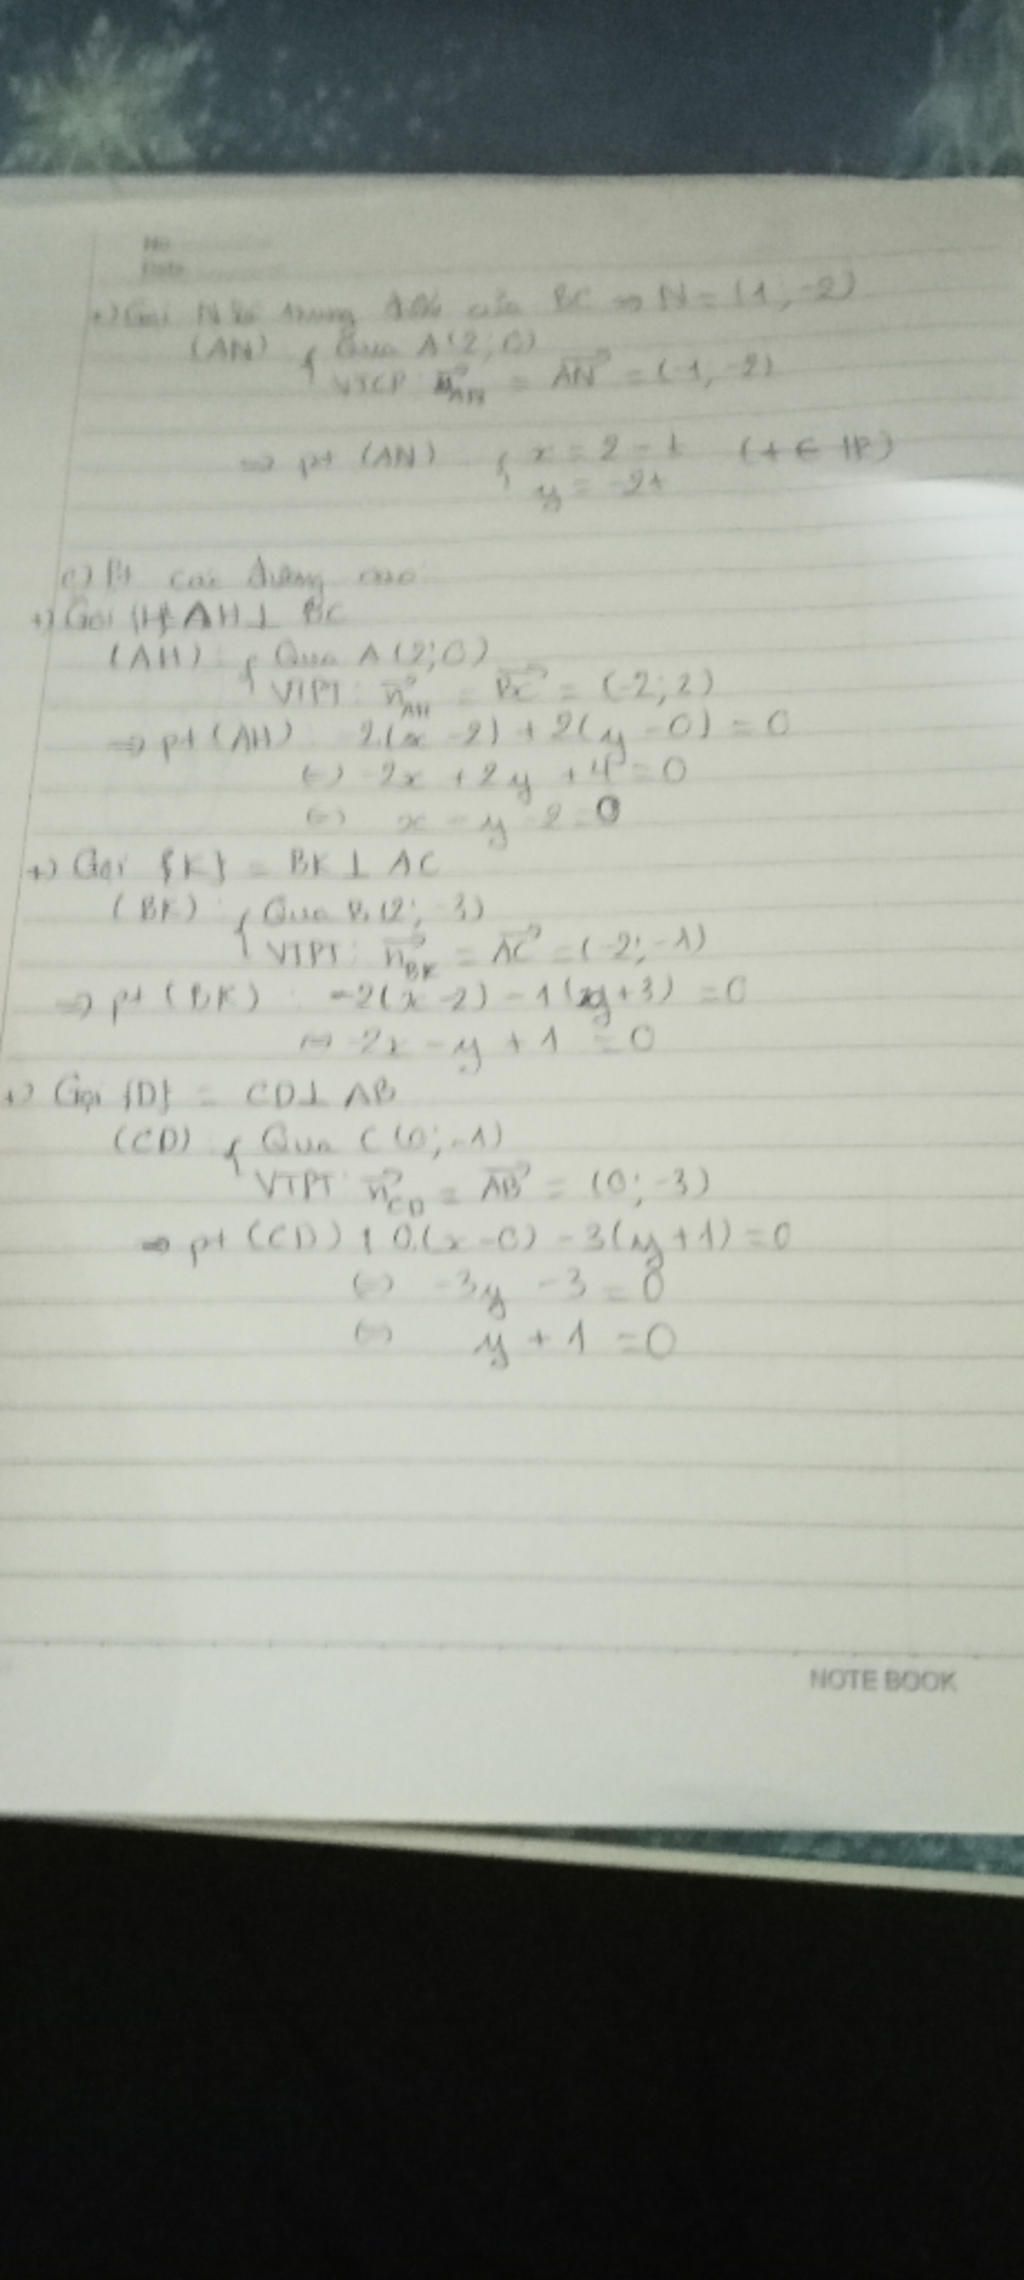 No
Date
+) Gọi N là trung điểm của BC => N = (1; -2)
(AN) { Qua A(2; 0)
VTCP: u_AN = AN = (-1; -2)
=> pt (AN) { x = 2 - t (t ∈ IR)
y = -2t
c) Pt các đường cao
+) Gọi {H} AH ⊥ BC
(AH): { Qua A(2; 0)
VTPT: n_AH = BC = (-2; 2)
=> pt (AH): -2(x - 2) + 2(y - 0) = 0
(=) -2x + 2y + 4 = 0
(=) x - y - 2 = 0
+) Gọi {K} = BK ⊥ AC
(BK): { Qua B(2; -3)
VTPT: n_BK = AC = (-2; -1)
=> pt (BK): -2(x - 2) - 1(y + 3) = 0
(=) -2x - y + 1 = 0
+) Gọi {D} = CD ⊥ AB
(CD): { Qua C(0; -1)
VTPT: n_CD = AB = (0; -3)
=> pt (CD): 0.(x - 0) - 3(y + 1) = 0
(=) -3y - 3 = 0
(=) y + 1 = 0
NOTE BOOK